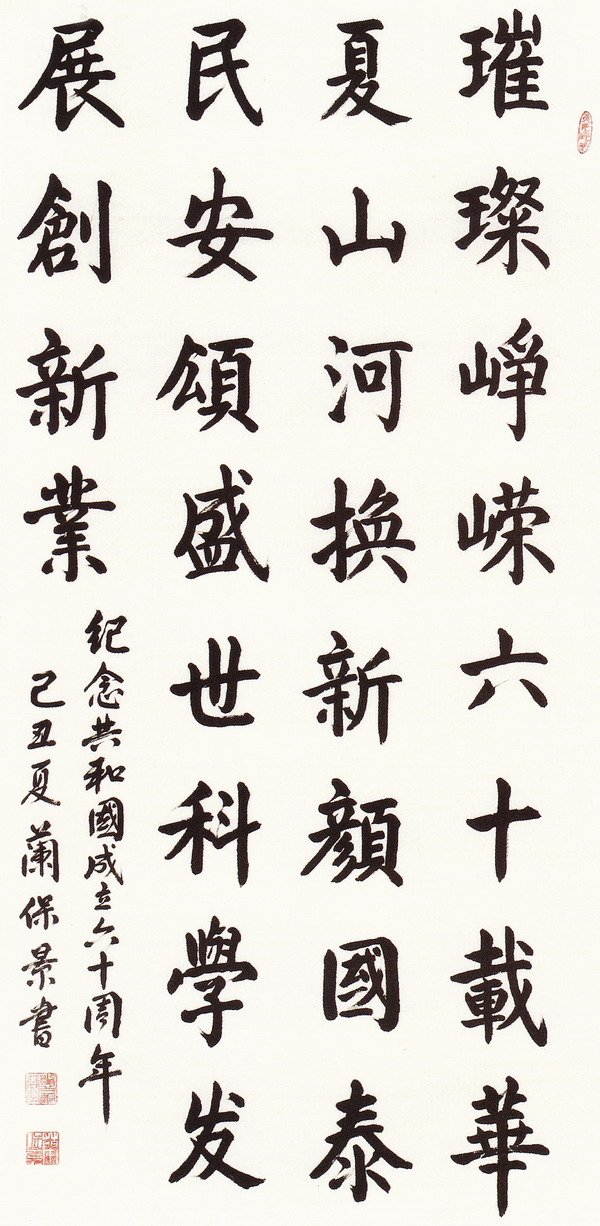 璀璨崢嶸六十載華
夏山河换新顏國泰
民安頌盛世科學发
展創新業
纪念共和國成立六十周年
己丑夏蘭保景書